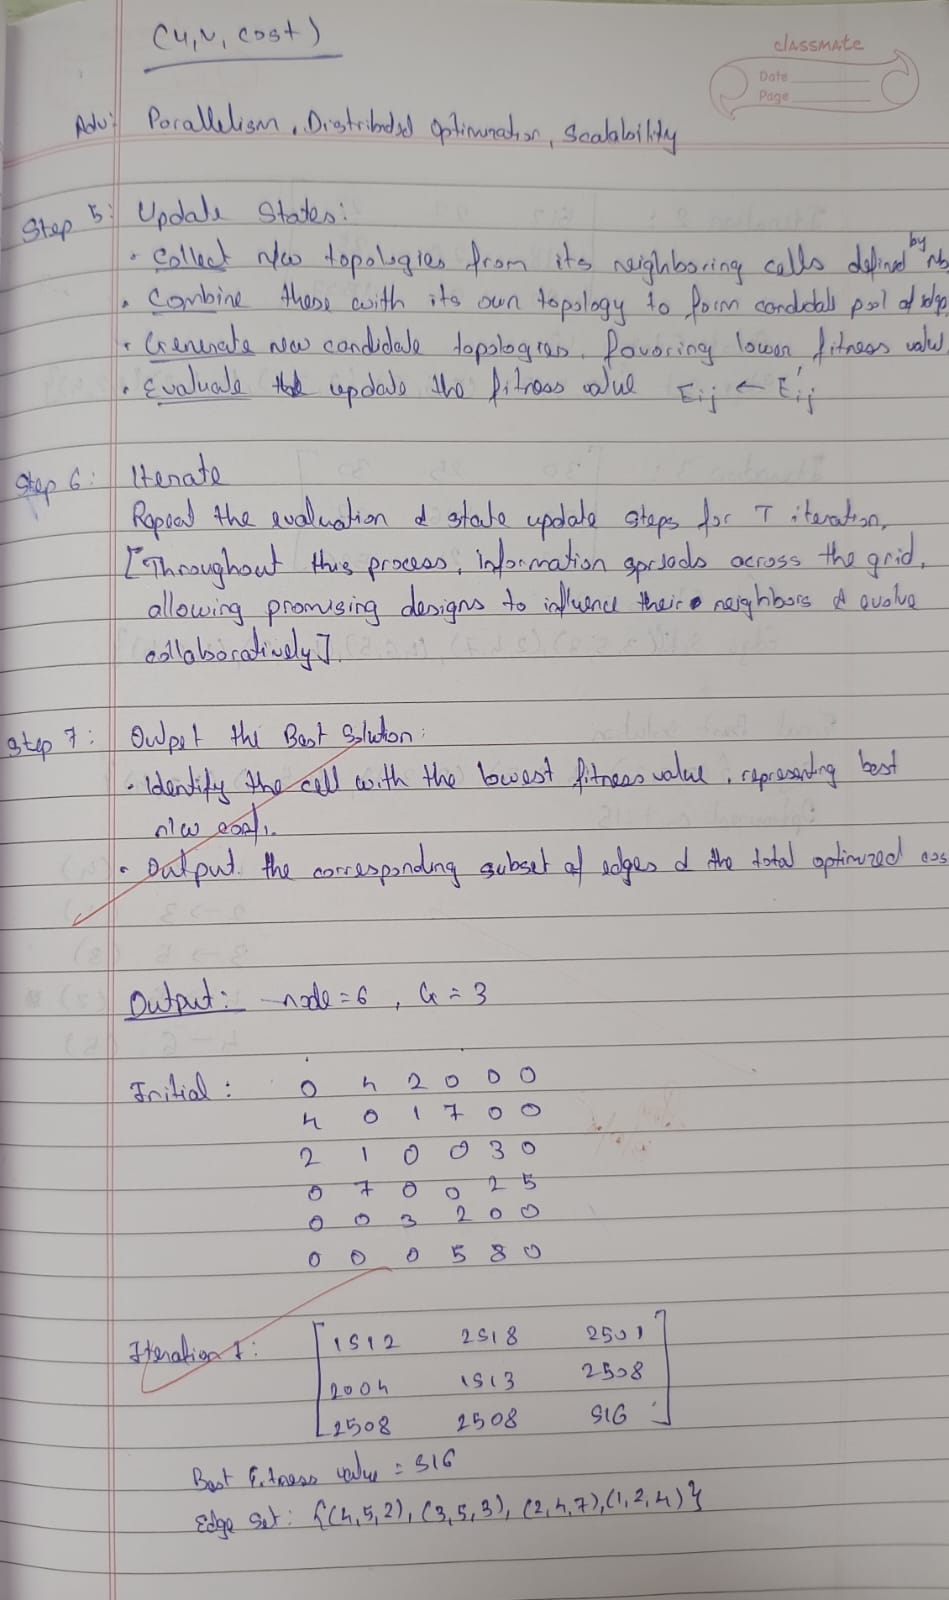 (u, v, cost)
classmate
Date
Page
Adv: Parallelism, Distributed Optimization, Scalability
Step 5: Update States:
• Collect n/w topologies from its neighboring cells defined by
• Combine these with its own topology to form candidate pool of edge
• Generate new candidate topologies, favoring lower fitness value
• Evaluate update the fitness value Eij ← E'ij
Step 6: Iterate
Repeat the evaluation & state update steps for T iteration.
[Throughout this process, information spreads across the grid,
allowing promising designs to influence their neighbors & evolve
collaboratively].
Step 7: Output the Best Solution:
• Identify the cell with the lowest fitness value, representing best
n/w
• Output the corresponding subset of edges & the total optimized cos
Output: node = 6, G = 3
Initial: 0 4 2 0 0 0
4 0 1 7 0 0
2 1 0 0 3 0
0 7 0 0 2 5
0 0 3 2 0 0
0 0 0 5 8 0
Iteration 1: [1512 2518 2501
2004 1513 2508
2508 2508 516]
Best Fitness value = 516
Edge Set: {(4,5,2), (3,5,3), (2,4,7), (1,2,4)}